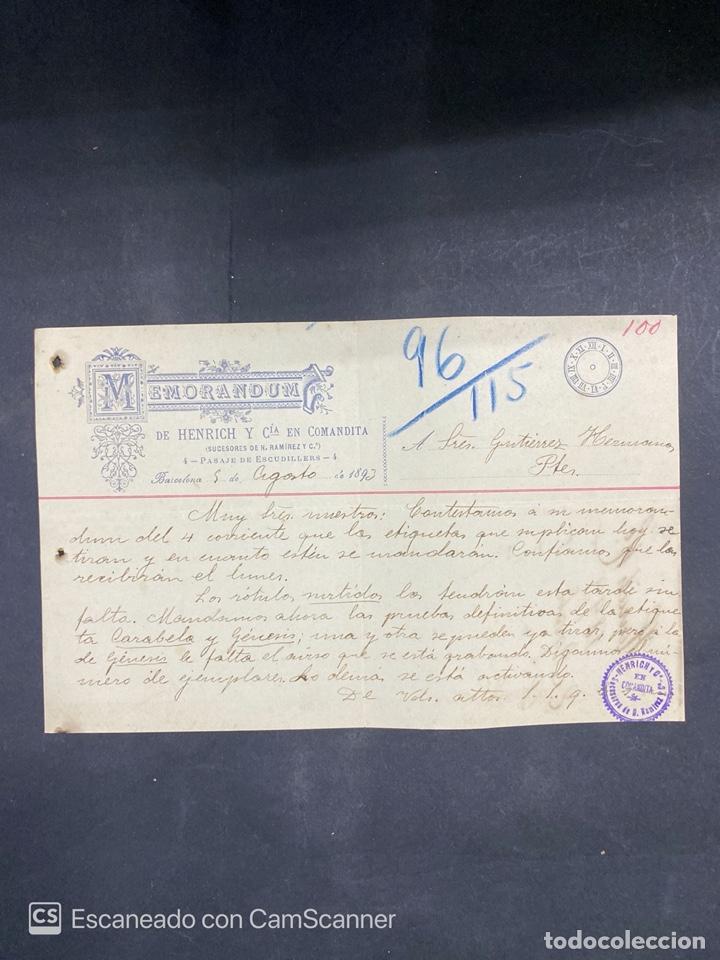 96/115
100
MEMORANDUM
DE HENRICH Y Cía EN COMANDITA
(SUCESORES DE N. RAMÍREZ Y C.ª)
4 - PASAJE DE ESCUDILLERS - 4
Barcelona 5 de Agosto de 1893
XII · I · II · III · IIII · V · VI · VII · VIII · IX · X · XI
A Sres. Gutiérrez Hermanos
Pte.
Muy Sres. nuestros: Contestamos á su memoran-
dum del 4 corriente que las etiquetas que suplican hoy se
tiran y en cuanto estén se mandarán. Confiamos que las
recibirán el lunes.
Los rótulos surtidos los tendrán esta tarde sin
falta. Mandamos ahora las pruebas definitivas de la etique-
ta Carabela y Génesis; una y otra se pueden ya tirar, pero á la
de Génesis le falta el que se está grabando. Digannos nú-
mero de ejemplares. Lo demas se está activando.
De Vds. attos. s. s. q.
HENRICH Y Cª
EN
COMANDITA
de N. Ramírez
CS Escaneado con CamScanner
todocoleccion